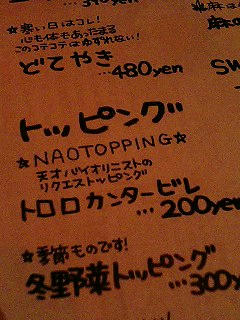 …390yen
☆寒い日はコレ!
心も体もあったまる
このコテコテはゆずれない!
どてやき
…480yen
トッピング
☆NAOTOPPING☆
天才バイオリニストの
リクエストトッピング
トロロカンタービレ
…200yen
☆季節ものです!
冬野菜トッピング
…300y